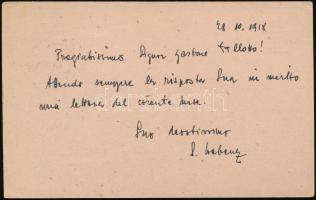 28. 10. 1918
Pregiatissimo Signor
Attendo sempre la risposta Sua in merito
mia lettera del corrente mese.
Suo devotissimo